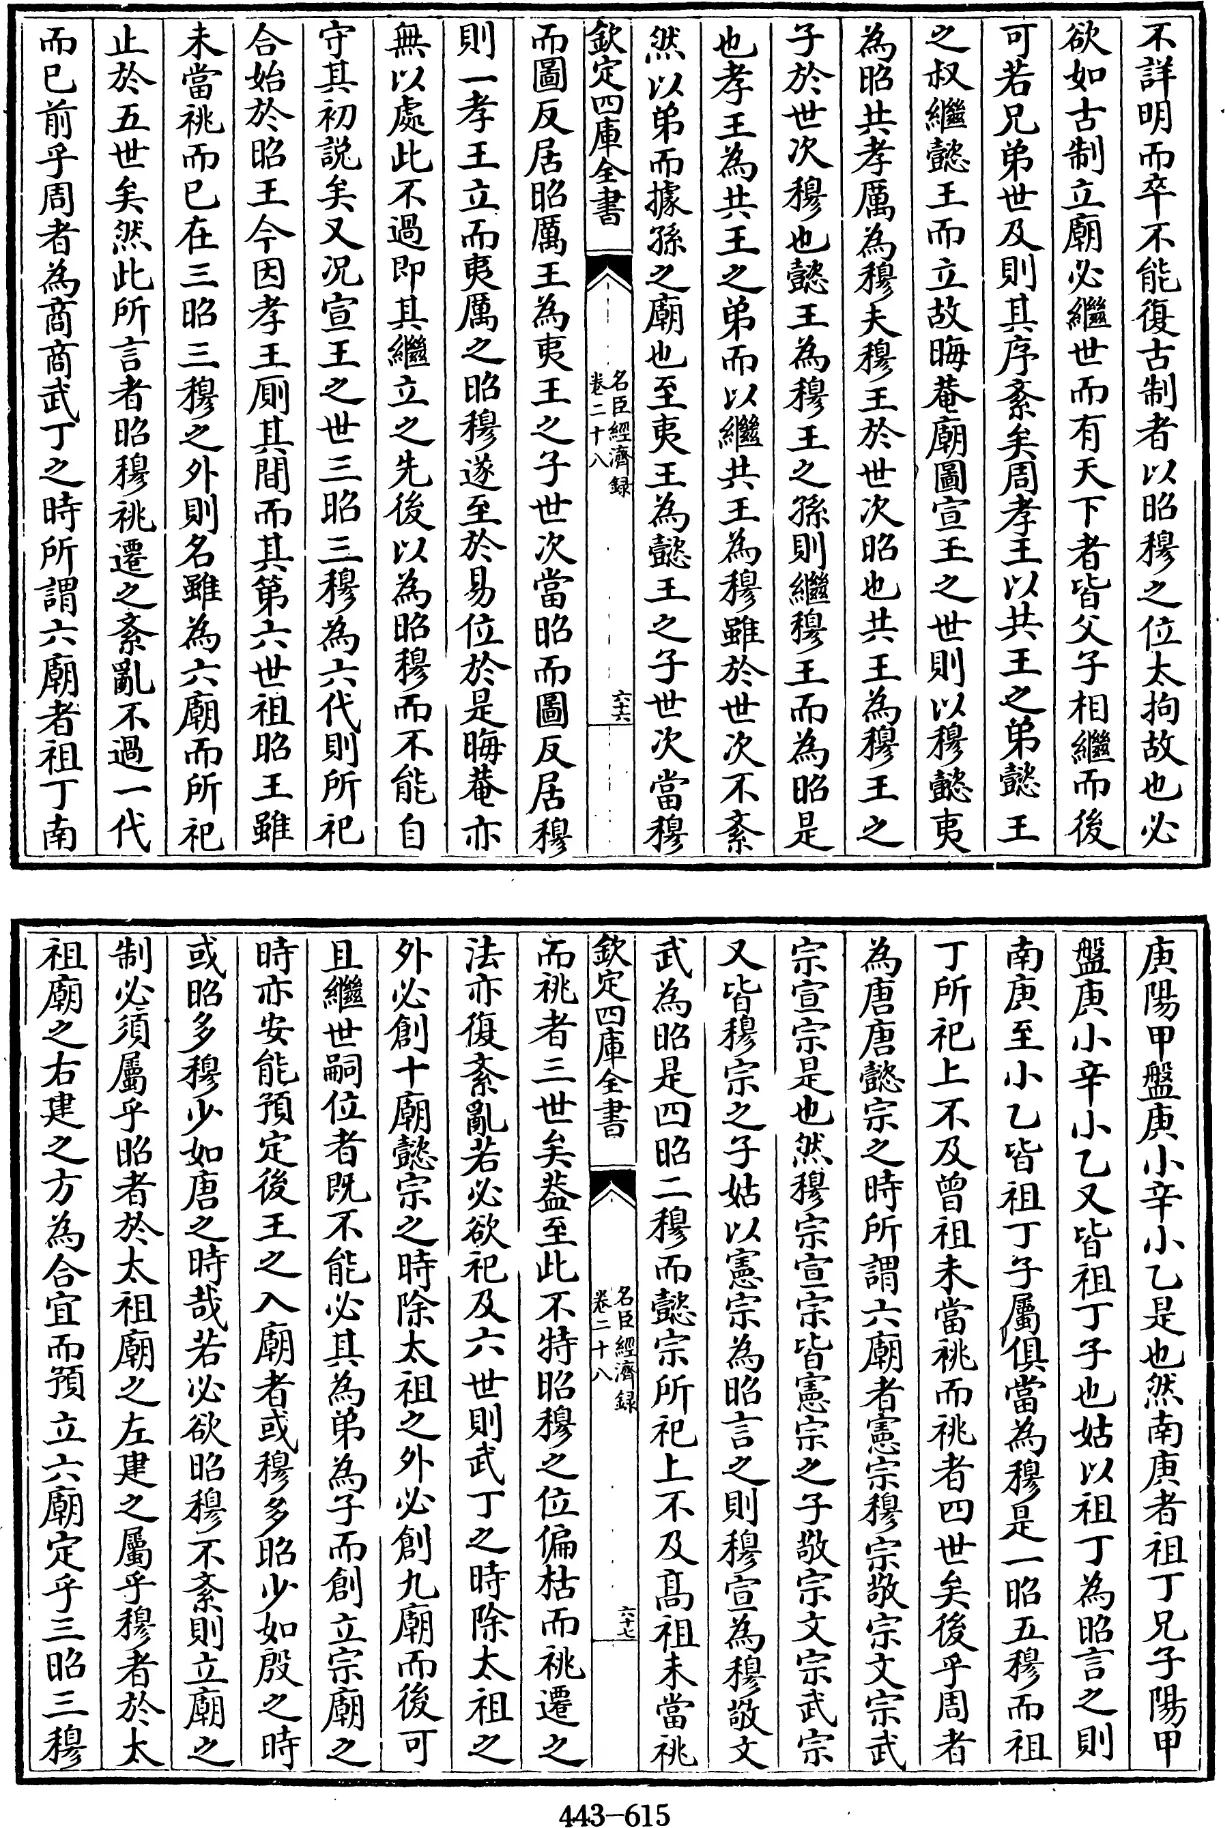 不詳明而卒不能復古制者以昭穆之位太拘故也必
欲如古制立廟必繼世而有天下者皆父子相繼而後
可若兄弟世及則其序紊矣周孝王以共王之弟懿王
之叔繼懿王而立故晦菴廟圖宣王之世則以穆懿夷
為昭共孝厲為穆夫穆王於世次昭也共王為穆王之
子於世次穆也懿王為穆王之孫則繼穆王而為昭是
也孝王為共王之弟而以繼共王為穆雖於世次不紊
然以弟而據孫之廟也至夷王為懿王之子世次當穆
欽定四庫全書
名臣經濟録
卷二十八
六十六
而圖反居昭厲王為夷王之子世次當昭而圖反居穆
則一孝王立而夷厲之昭穆遂至於易位於是晦菴亦
無以處此不過即其繼立之先後以為昭穆而不能自
守其初說矣又况宣王之世三昭三穆為六代則所祀
合始於昭王今因孝王厠其間而其第六世祖昭王雖
未當祧而已在三昭三穆之外則名雖為六廟而所祀
止於五世矣然此所言者昭穆祧遷之紊亂不過一代
而已前乎周者為商商武丁之時所謂六廟者祖丁南
庚陽甲盤庚小辛小乙是也然南庚者祖丁兄子陽甲
盤庚小辛小乙又皆祖丁子也姑以祖丁為昭言之則
南庚至小乙皆祖丁子屬俱當為穆是一昭五穆而祖
丁所祀上不及曾祖未當祧而祧者四世矣後乎周者
為唐唐懿宗之時所謂六廟者憲宗穆宗敬宗文宗武
宗宣宗是也然穆宗宣宗皆憲宗之子敬宗文宗武宗
又皆穆宗之子姑以憲宗為昭言之則穆宣為穆敬文
武為昭是四昭二穆而懿宗所祀上不及髙祖未當祧
欽定四庫全書
名臣經濟録
卷二十八
六十七
而祧者三世矣葢至此不特昭穆之位偏枯而祧遷之
法亦復紊亂若必欲祀及六世則武丁之時除太祖之
外必創十廟懿宗之時除太祖之外必創九廟而後可
且繼世嗣位者既不能必其為弟為子而創立宗廟之
時亦安能預定後王之入廟者或穆多昭少如殷之時
或昭多穆少如唐之時哉若必欲昭穆不紊則立廟之
制必須屬乎昭者於太祖廟之左建之屬乎穆者於太
祖廟之右建之方為合宜而預立六廟定乎三昭三穆
443-615